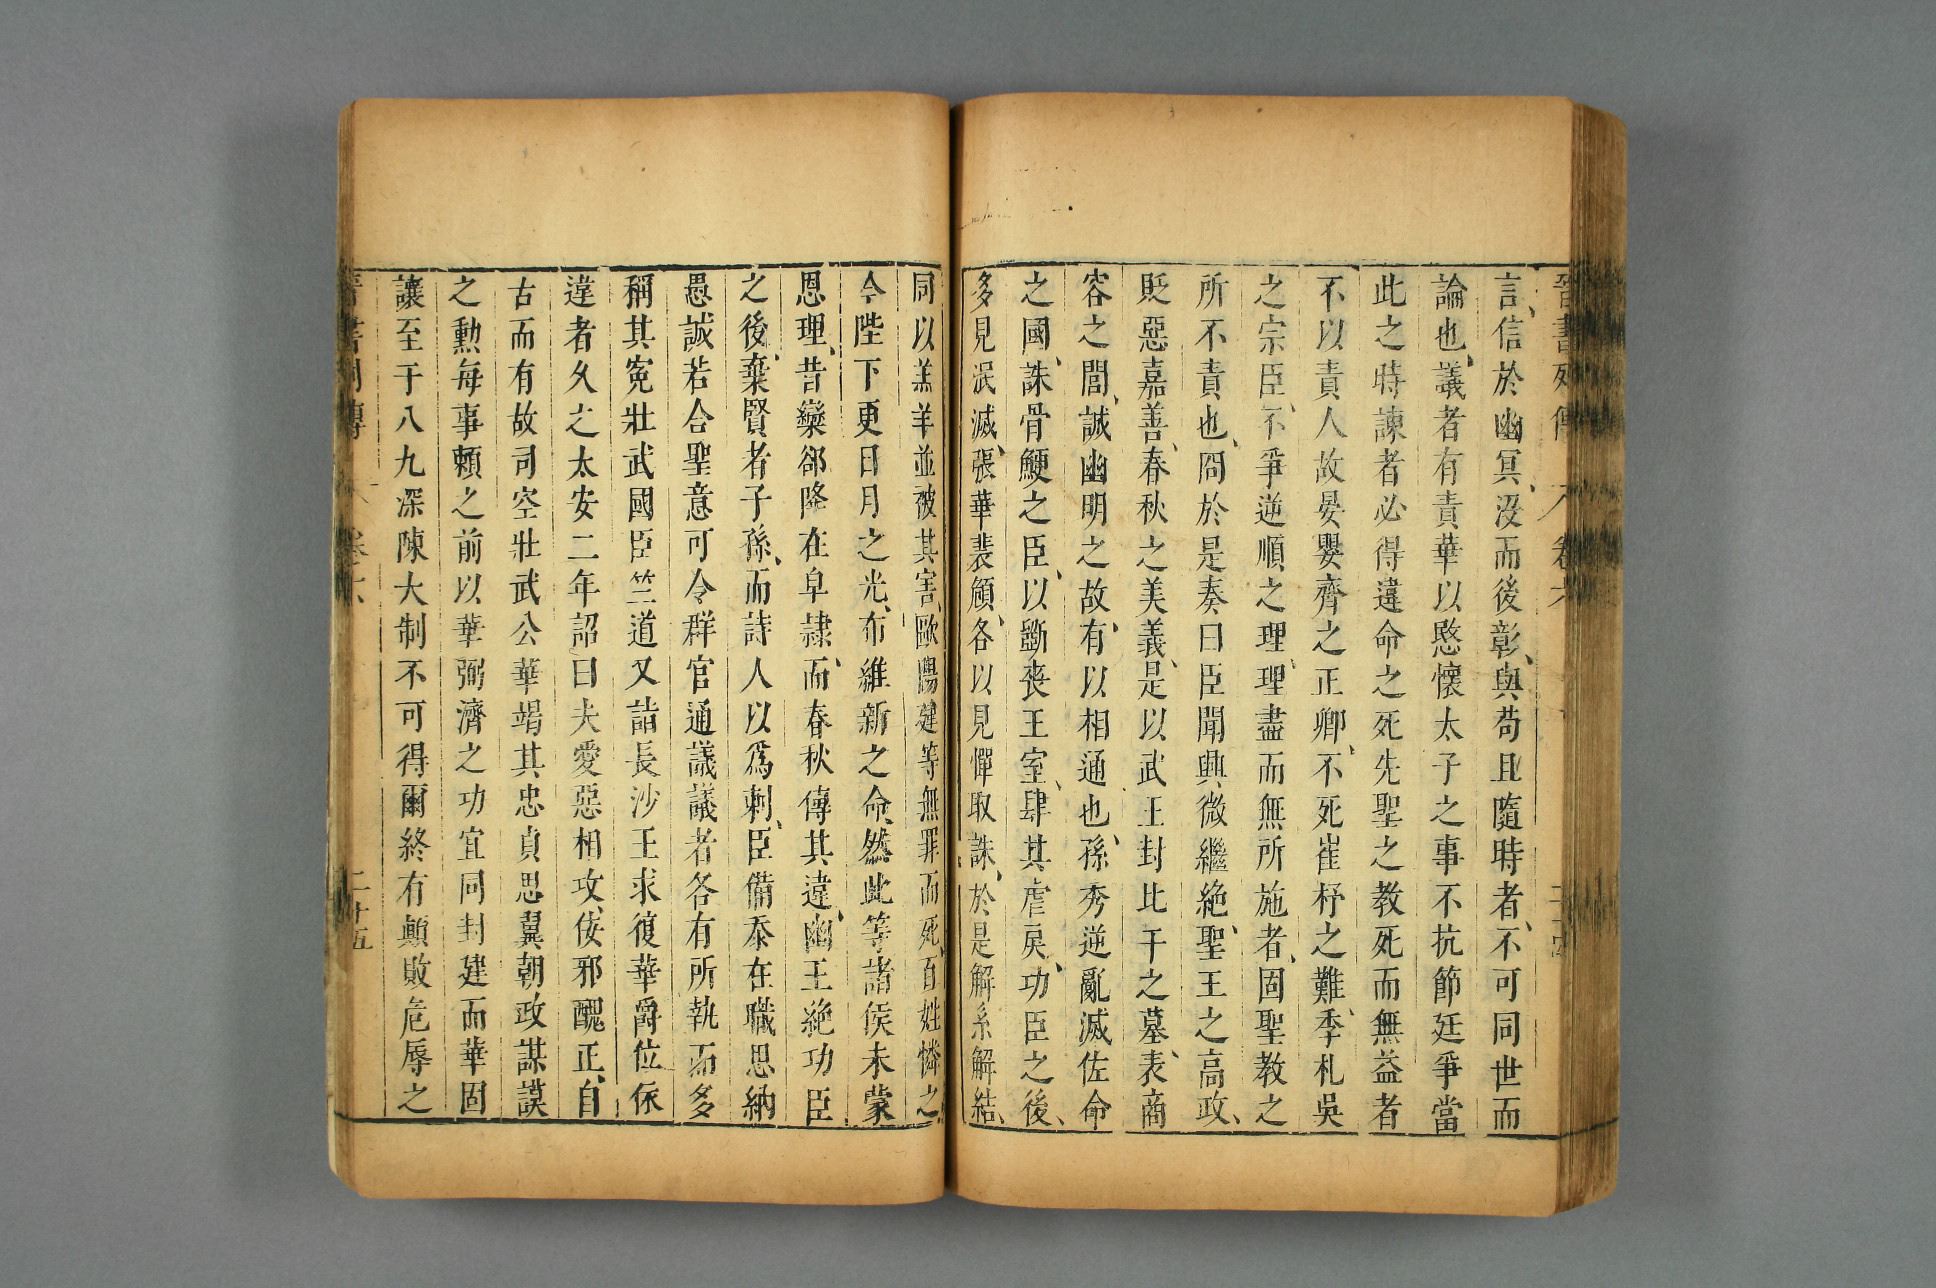 晉書列傳 卷六
言信於幽冥没而後彰與苟且隨時者不可同世而
論也議者有責華以愍懷太子之事不抗節廷爭當
此之時諫者必得違命之死先聖之教死而無益者
不以責人故晏嬰齊之正卿不死崔杼之難季札吳
之宗臣不爭逆順之理理盡而無所施者固聖教之
所不責也冏於是奏曰臣聞興微繼絶聖王之高政
貶惡嘉善春秋之美義是以武王封比干之墓表商
容之閭誠幽明之故有以相通也孫秀逆亂滅佐命
之國誅骨鯁之臣以斵喪王室肆其虐戾功臣之後
多見泯滅張華裴頠各以見憚取誅於是解系解結
同以羔羊並被其害歐陽建等無罪而死百姓憐之
今陛下更日月之光布維新之命然此等諸侯未蒙
恩理昔欒郤降在皁隷而春秋傳其違幽王絶功臣
之後棄賢者子孫而詩人以爲刺臣備忝在職思納
愚誠若合聖意可令群官通議議者各有所執而多
稱其寃壯武國臣竺道又詣長沙王求復華爵位依
違者久之太安二年詔曰夫愛惡相攻佞邪醜正自
古而有故司空壯武公華竭其忠貞思翼朝政謀謨
之勲每事賴之前以華弼濟之功宜同封建而華固
讓至于八九深陳大制不可得爾終有顚敗危辱之
晉書列傳 卷六 二十五